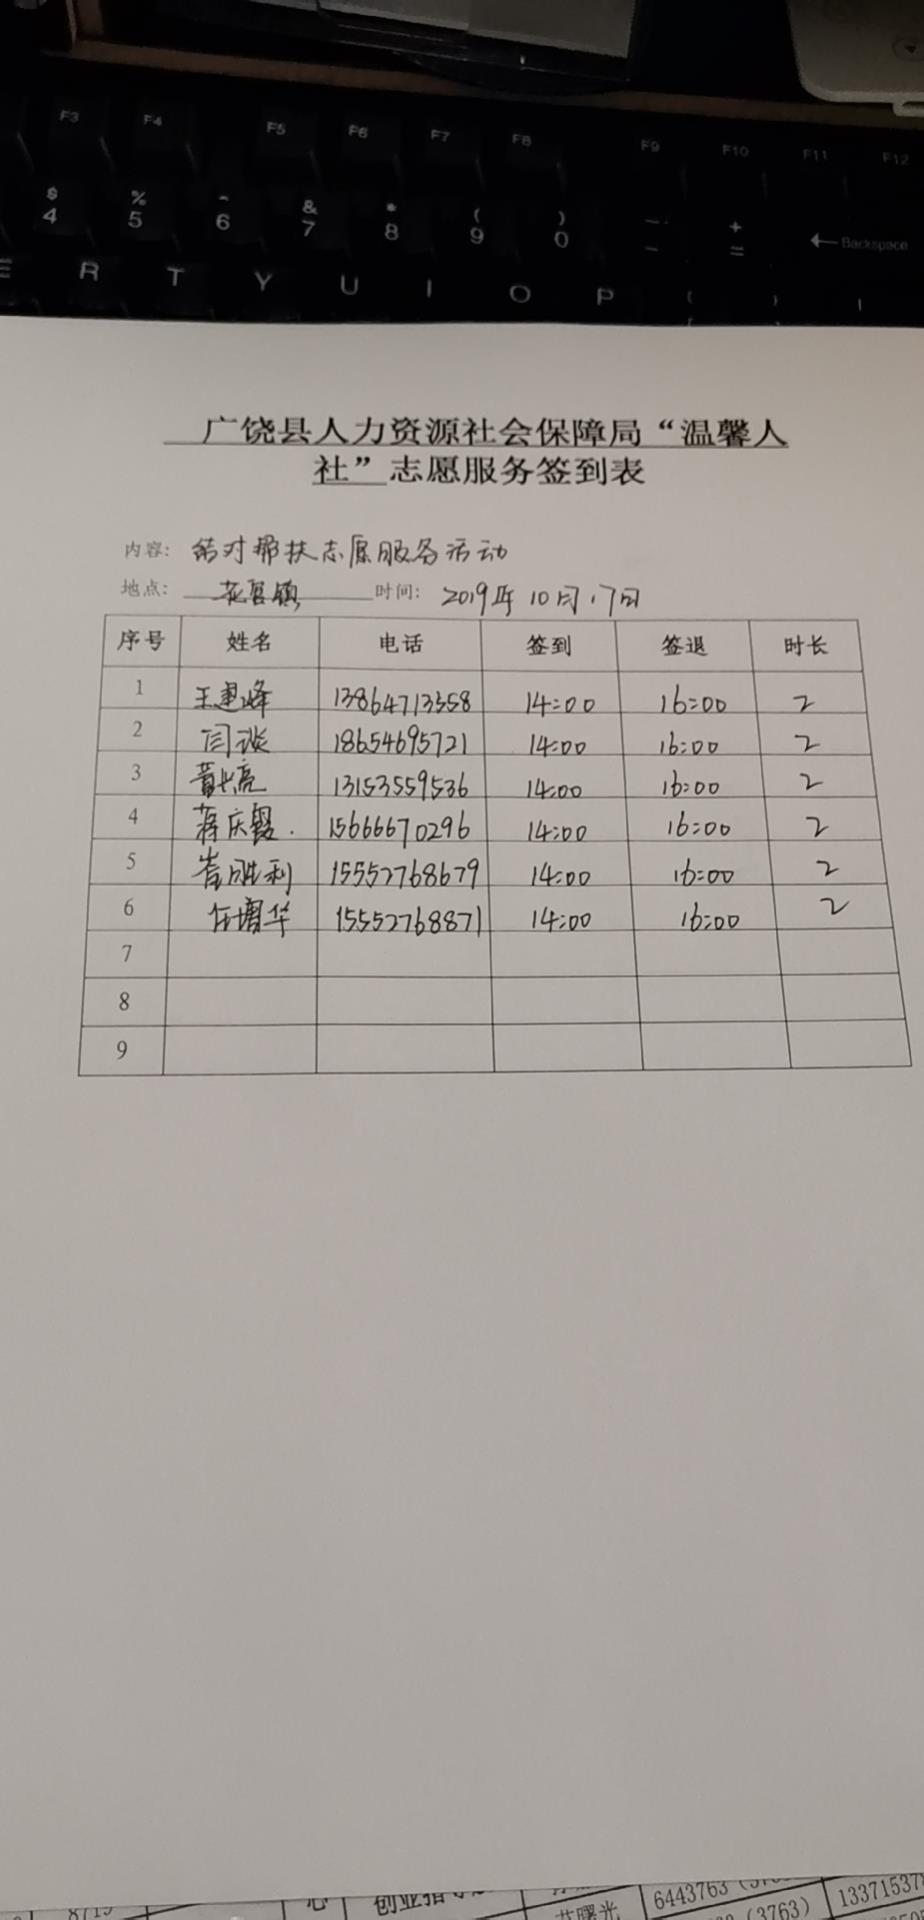 F3 F4 F5 F6 F7 F8 F9 F10 F11 F12
$ % ^ & * ( ) _ +
4 5 6 7 8 9 0 - = ← Backspace
E R T Y U I O P
广饶县人力资源社会保障局“温馨人
社”志愿服务签到表
内容: 结对帮扶志愿服务活动
地点: 花官镇 时间: 2019年10月17日
序号 姓名 电话 签到 签退 时长
1 王建峰 13864713558 14:00 16:00 2
2 闫谈 18654695721 14:00 16:00 2
3 13153559536 14:00 16:00 2
4 蒋庆霞 15666670296 14:00 16:00 2
5 崔胜利 15552768679 14:00 16:00 2
6 任增华 15552768871 14:00 16:00 2
7
8
9
8715 心 创业指 6443763 133715378
艾曙光 (3763)